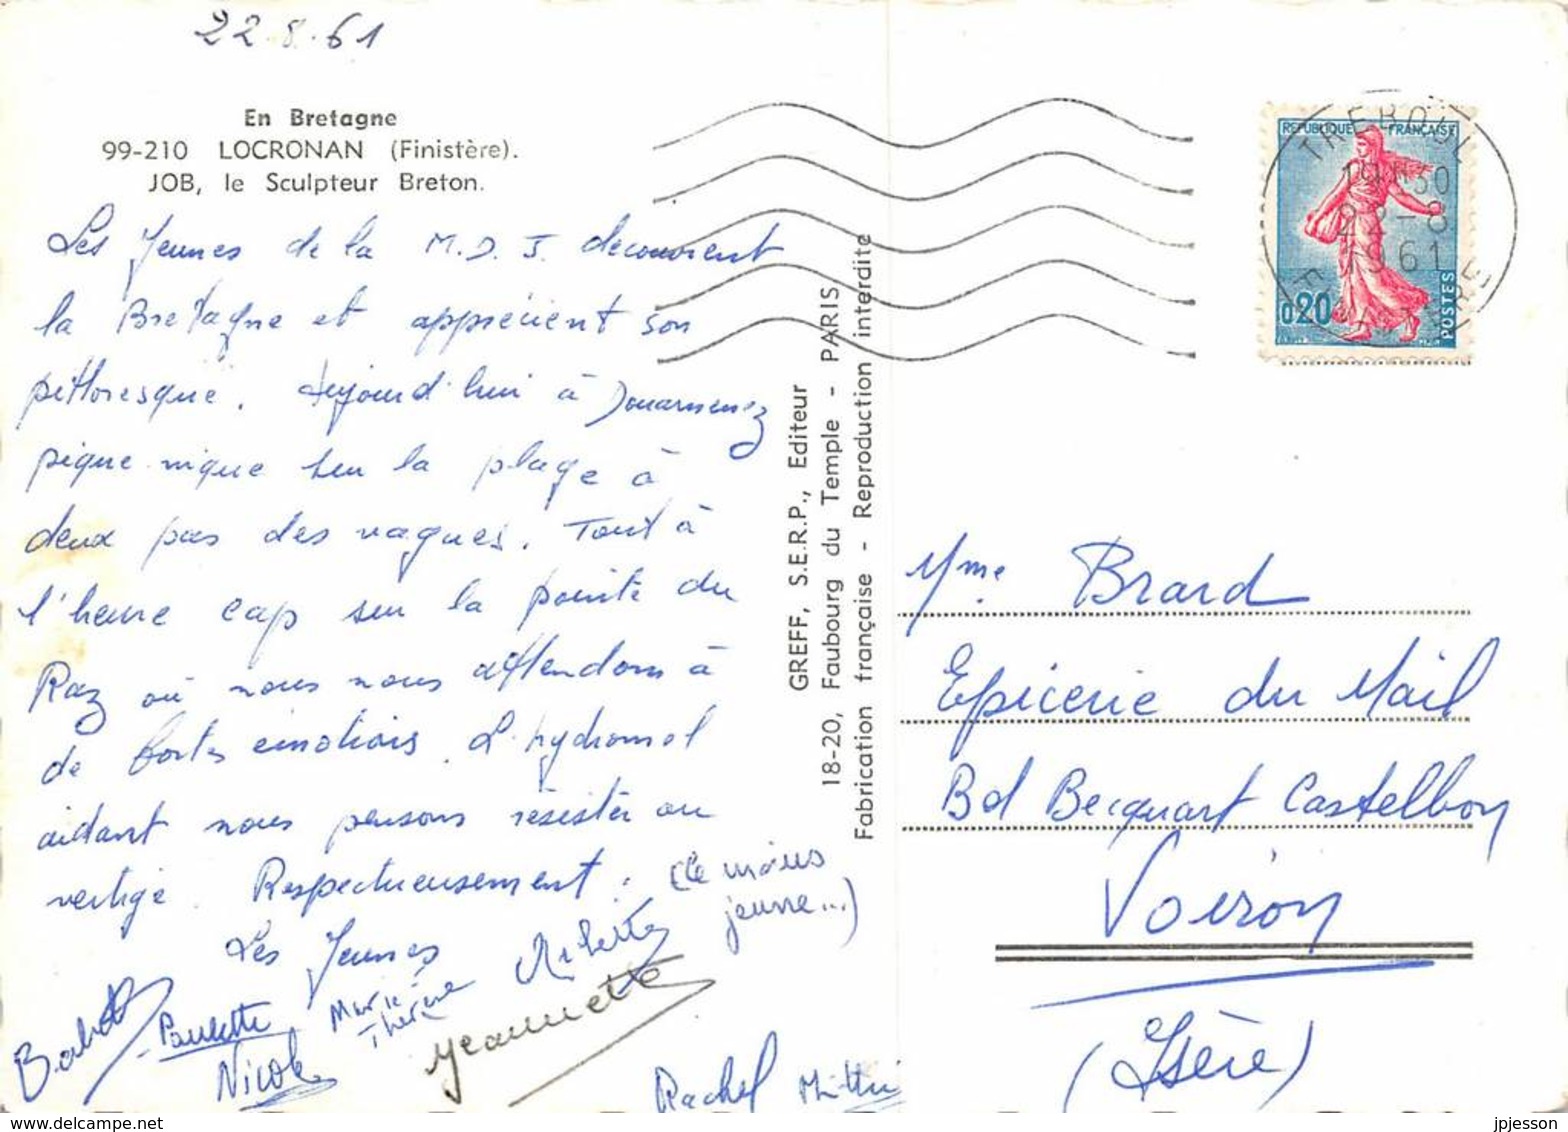 22.8.61
En Bretagne
99-210 LOCRONAN (Finistère).
JOB, le Sculpteur Breton.
Les Jeunes de la M.D.J. decouvrent
la Bretagne et apprécient son
pittoresque. Aujourd'hui à Douarnenez
pique-nique sur la plage à
deux pas des vagues. Tout à
l'heure cap sur la pointe du
Raz où nous nous attendons à
de fortes emotions. L'hydromel
aidant nous pensons résister au
vertige. Respectueusement.
Les Jeunes
(le moins
jeune...)
Arlette
Marie-
Thérèse
Babeth
Paulette
Nicole
Jeannette
Rachel
GREFF, S.E.R.P., Editeur
18-20, Faubourg du Temple - PARIS
Fabrication française - Reproduction interdite
REPUBLIQUE FRANÇAISE
0,20
POSTES
TREBOUL
19H30
22-8
1961
FINISTERE
Mme Brard
Epicerie du Mail
Bd Becquart Castelbon
Voiron
(Isère)
jpjesson